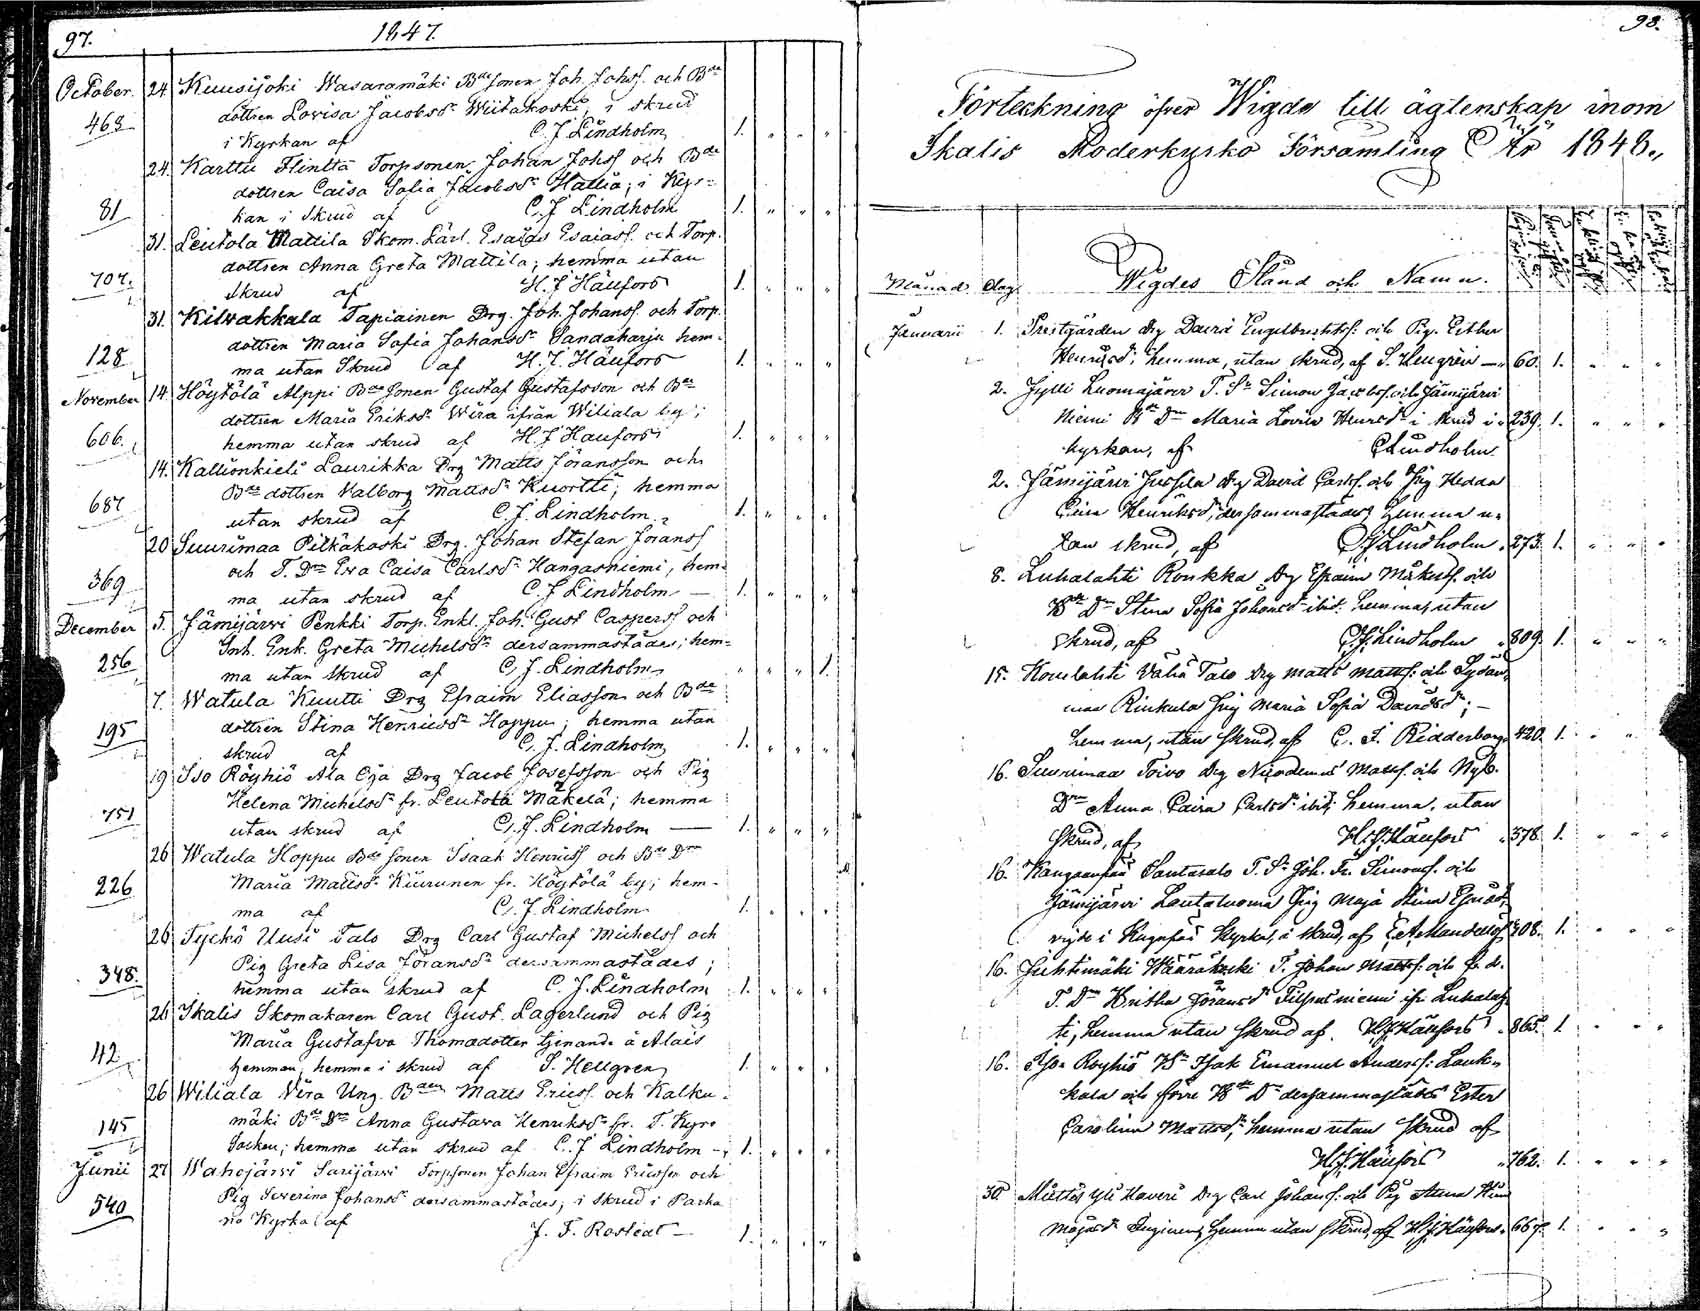 97. 1847.
October. 24. Kuusijoki Wasaramäki Bde sonen Joh. Johss. och Bde
dottren Lovisa Jacobsdr Wiitakoski; i skrud
463 i Kyrkan af C. J. Lindholm 1. " " "
24. Karttu Flinttä Torpsonen Johan Johss och Bde
dottren Caisa Sofia Jacobsdr Hattia; i Kyr-
81 kan i Skrud af C. J Lindholm 1. " " "
31. Leutola Mattila Skom. Lärl. Esaias Esaiass. och Torp.
dottren Anna Greta Mattila; hemma utan
707. skrud af H. J Häufors 1. " " "
31. Kilwakkala Tapiainen Drg. Joh. Johanss. och Torp.
dottren Maria Sofia Johansdr Sandaharju hem-
128 ma utan Skrud af H. J. Häufors 1. " " "
November 14. Höytölä Alppi Bde Sonen Gustaf Gustafsson och Bde
dottren Maria Eriksdr Wira ifrån Wiliala by;
606. hemma utan skrud af H. J Haufors 1. " " "
14. Kallionkieli Laurikka Drg Matts Jöransson och
Bde dottren Valborg Mattsdr Kuortti; hemma
687 utan skrud af C. J. Lindholm 1. " " "
20 Suurimaa Pitkäkoski Drg. Johan Stefan Jöranss
och T. Dr Eva Caisa Carlsdr Hangasniemi, hem-
369 ma utan skrud af C. J Lindholm — 1. " " "
December 5. Jämijärvi Penkki Torp. Enkl. Joh. Gust Casperss och
Inh. Enk. Greta Michelsdr dersammastädes; hem-
256 ma utan skrud af C. J. Lindholm " " " 1.
7. Watula Kuutti Drg Efraim Eliasson och Bde
dottren Stina Henricsdr Hoppu; hemma utan
195 skrud af C. J. Lindholm 1. " " "
19 Iso Röyhiö Ala Oja Drg Jacob Josefsson och Pig
Helena Michelsdr fr. Leutola Mäkelä; hemma
751 utan skrud af C. J. Lindholm — 1. " " "
26 Watula Hoppu Bde Sonen Isaak Henricss och Bde Dr
Maria Mattsdr Kiurunen fr. Höytölä by; hem-
226 ma af C. J. Lindholm 1. " " "
26 Tyckö Uusi Talo Drg Carl Gustaf Michelss och
Pig Greta Lisa Jöransdr dersammastädes;
348. hemma utan skrud af C. J. Lindholm 1. " " "
26 Ikalis Skomakaren Carl Gust. Lagerlund och Pig
Maria Gustafva Thomædotter tjenande å Alais
42 hemman; hemma i skrud af S. Hellgren 1. " " "
26 Wiliala Vira Ung. Bden Matts Ericss. och Kalku-
mäki Bde Dr Anna Gustava Henriksdr fr. T. Kyro
145 Socken; hemma utan skrud af C. J Lindholm - 1. " " "
Junii 27 Wahojärvi Sarijärvi Torpsonen Johan Efraim Ericsson och
Pig Severina Johansdr dersammastädes; i skrud i Parka
540 no Kyrka af J. F. Rostedt — 1. " " "
98.
Förteckning öfver Wigde till ägtenskap inom
Ikalis Moderkyrko Församling År 1848.
Månad Dag. Wigdes Stånd och Namn.
Januarii 1. Prestgården drg David Engelbrechtss. och Pig. Esther
Henricsdr; hemma, utan skrud, af S. Hellgren — 60. 1. " " "
2. Jylli Luomajärvi T. Sn Simon Jacobss. och Jämijärvi
Niemi Bde Dr Maria Lovisa Henrsdr i skrud i 239. 1. " " "
kyrkan, af C Lindholm.
2. Jämijärvi Jussila drg David Carlss. och Pig Hedda
Caisa Henriksdr, dersammastädes, hemma u-
tan skrud, af C J Lindholm 273. 1. " " "
8. Luhalahti Roukka drg Efraim Mickelss. och
Bde Dr Stina Sofia Johansdr ibid. hemma, utan
skrud, af C. J. Lindholm 809. 1. " " "
15. Kovelahti Väha Talo drg Matts Mattss. och Sydän-
maa Rinkula Pig Maria Sofia Davidsdr; —
hemma, utan skrud, af C. F. Ridderborg 420. 1. " "
16. Suurimaa Toivo drg Nicodemus Matss. och Nyb.
Dr Anna Caisa Carlsdr ibid; hemma, utan
skrud, af H. J. Häufors 378. 1. " " "
16. Kangaanpää Santasalo T. Sn Joh. Fr. Simons. och
Jämijärvi Lautaluoma Pig Maja Stina
vigde i Kangaspää Kyrka, i skrud, af Mandellöf 308. 1. " " "
16. Juhtimäki Wäärakoski T. Johan Mattss. och f. d.
T. Dr Heritha Jöransdr ifr. Luhalah
ti, hemma utan skrud af H. J. Häufors 865. 1 " " "
16. Iso Röyhiö Bn Isak Emanuel Anderss. Lauk-
kala och förre Bde Dr dersammastädes Ester
Carolina Mattsdr, hemma utan skrud af
H. J. Häufors 762. 1. " " "
30. Miettis Yli Haveri Drg Carl Johanss. och Pig Anna
hemma utan skrud, af H J Häufors 667. 1. " " "